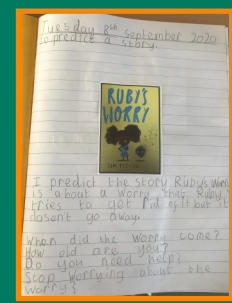 Tuesday 8th september 2020
To predict a story.
RUBY'S
WORRY
I predict the story Ruby's Worry
is about a worry that Ruby
tries to get rid of it but it
dosen't go away.
When did the worry come?
How old are you?
Do you need help?
Stop worrying about the
worry?